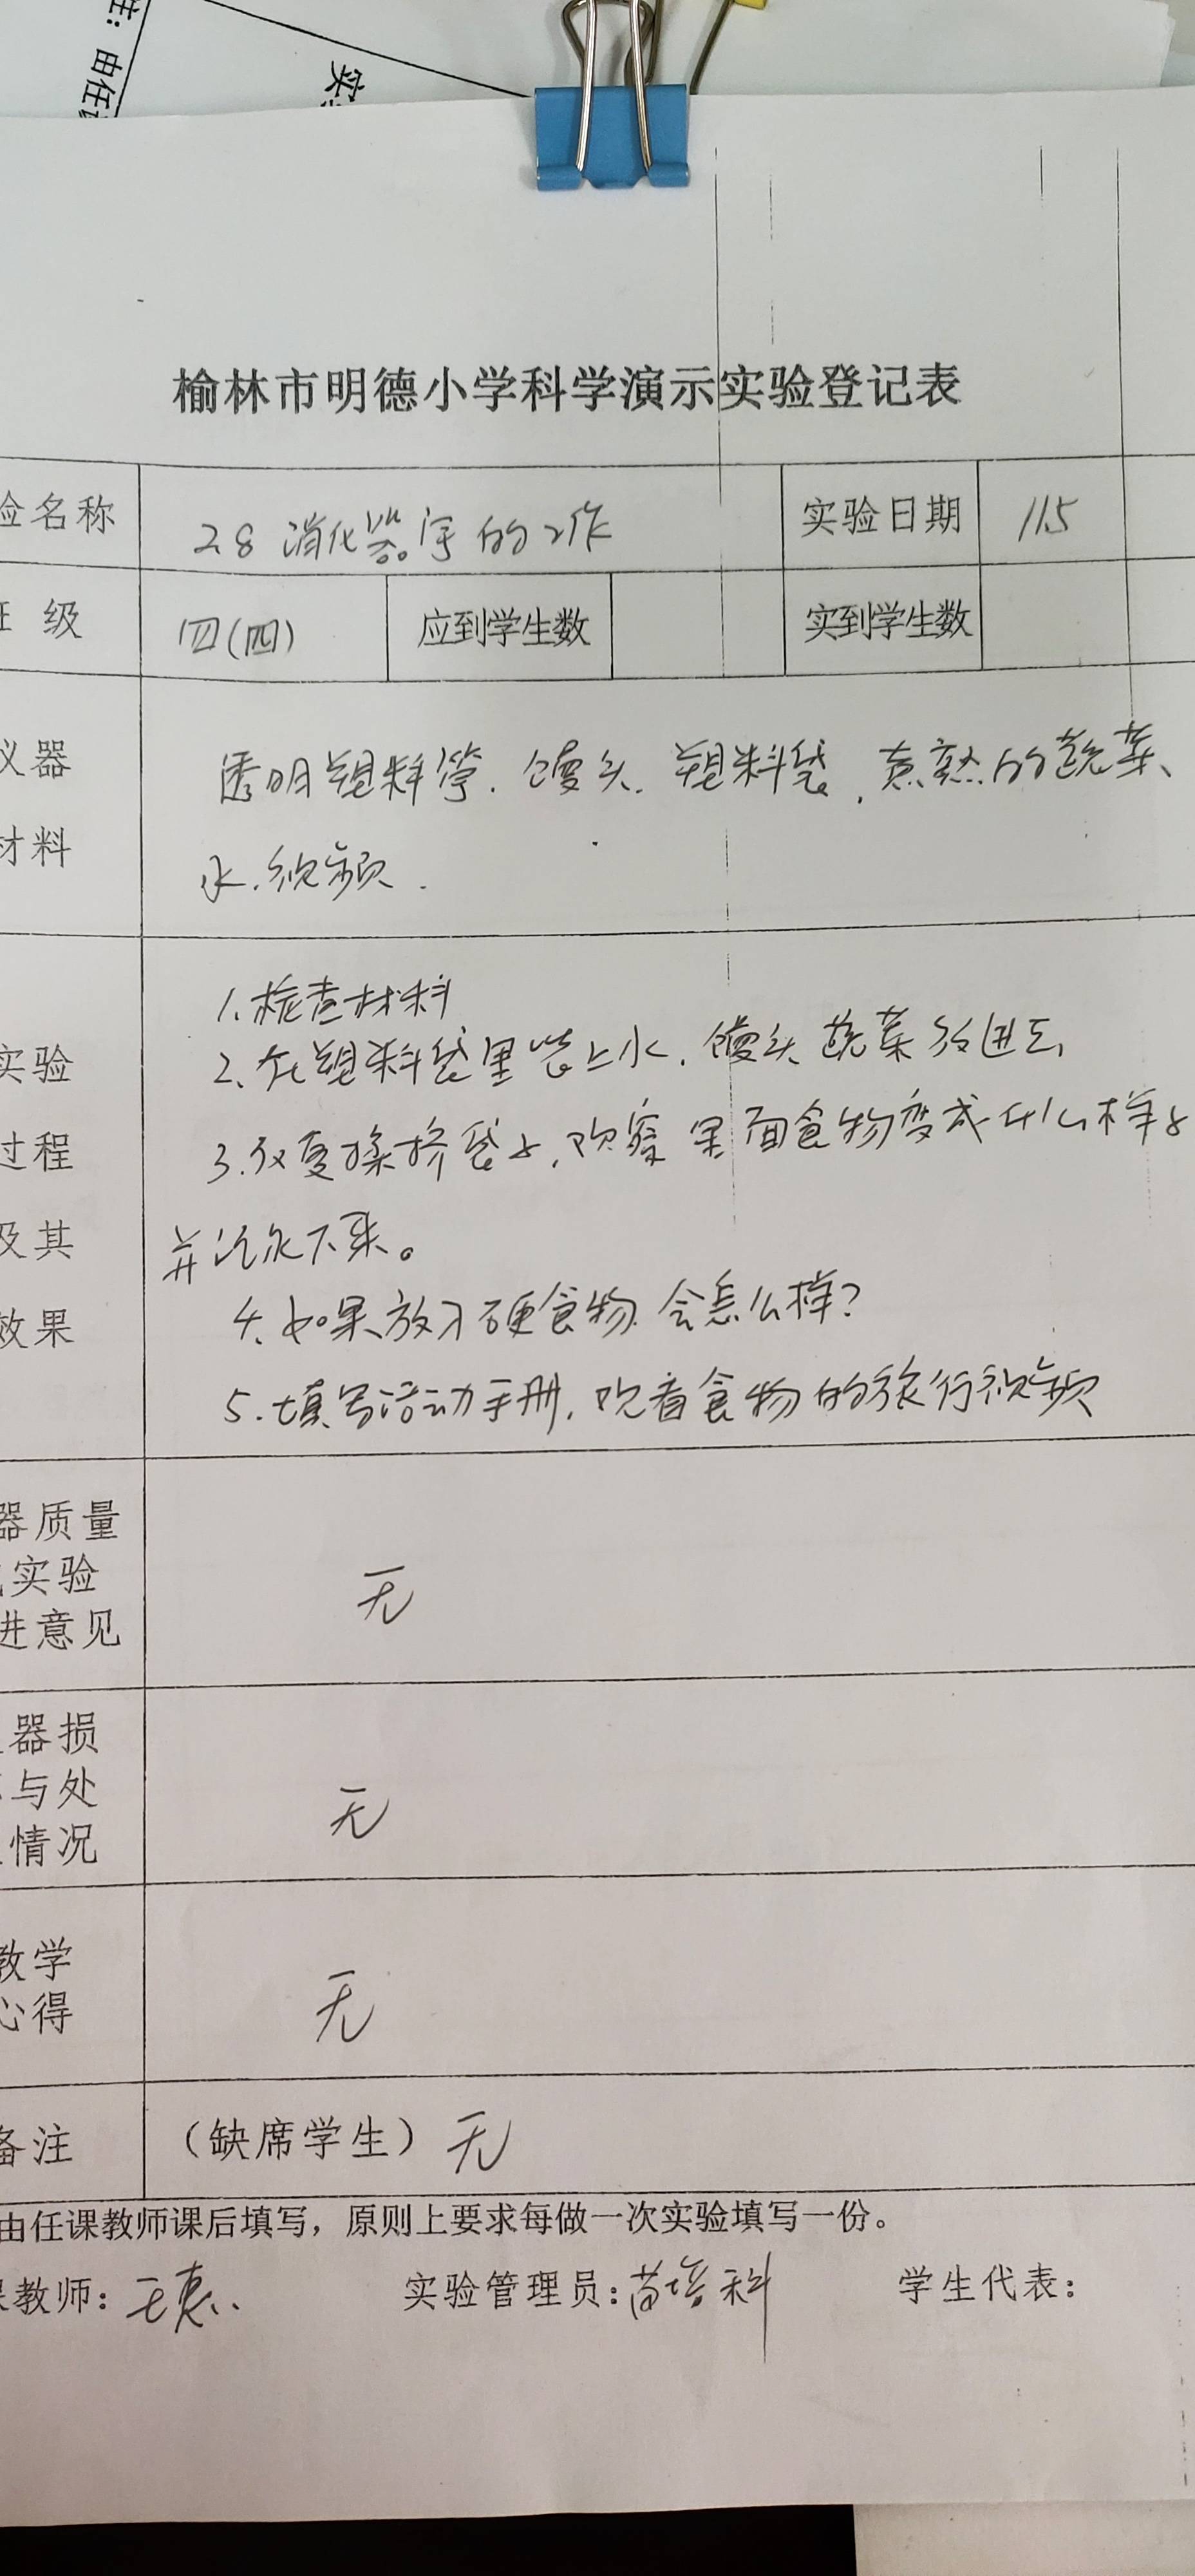 注：由任
实
榆林市明德小学科学演示实验登记表
验名称 2.8 消化器官的工作 实验日期 11.5
班 级 四(四) 应到学生数 实到学生数
仪器 透明塑料管、馒头、塑料袋、煮熟的蔬菜、
材料 水、视频.
1、检查材料
实验 2、在塑料袋里装上水、馒头 蔬菜放进去
过程 3.反复揉挤袋子,观察里面食物变成什么样子
及其 并记录下来。
效果 4、如果放入硬食物会怎么样?
5.填写活动手册,观看食物的旅行视频
器质量
实验 无
进意见
器损
与处 无
情况
教学 无
心得
备注 (缺席学生) 无
由任课教师课后填写，原则上要求每做一次实验填写一份。
课教师: 王惠 实验管理员:苗培科 学生代表: